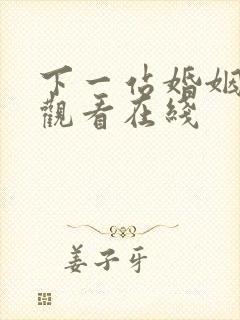 下一佔婚姻
觀看在綫
姜子牙